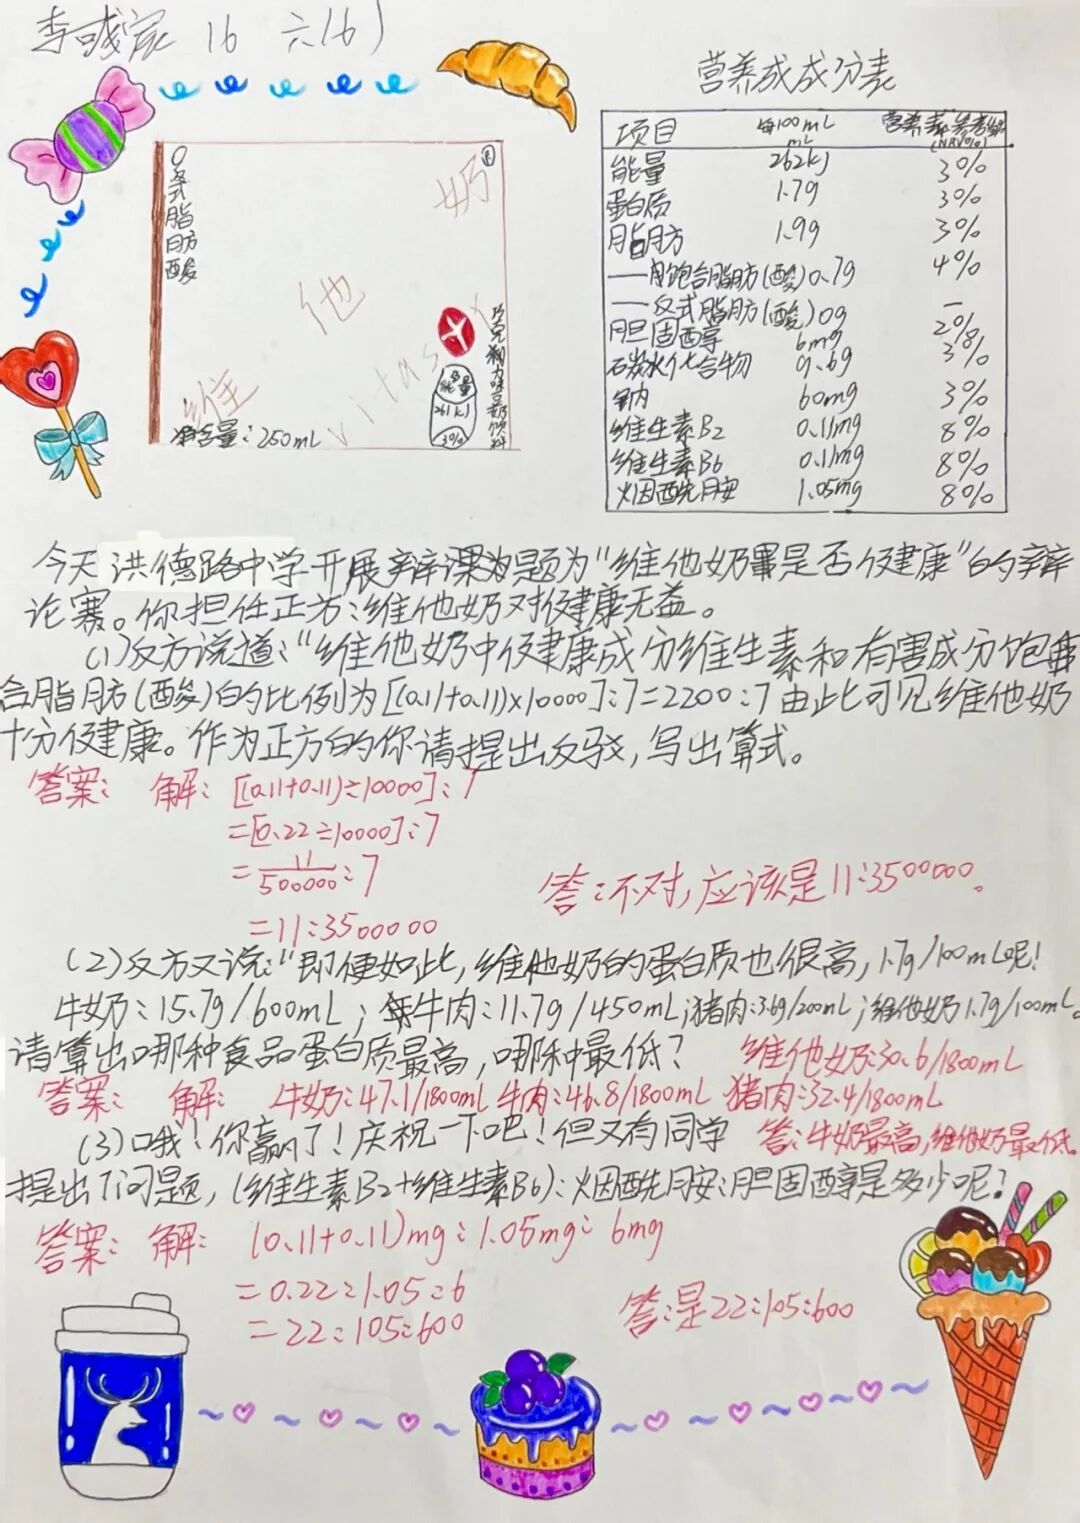 李 宸 16 六(6)
营养成成分表
项目 每100mL 营养素参考值
mL (NRV%)
能量 262kJ 3%
蛋白质 1.7g 3%
脂肪 1.9g 3%
——饱合脂肪(酸)0.7g 4%
——反式脂肪(酸)0g —
胆固醇 6mg 2%
石炭水化合物 9.6g 3%
钠 60mg 3%
维生素B2 0.11mg 8%
维生素B6 0.11mg 8%
烟酰胺 1.05mg 8%
0反式脂肪酸
维他奶
R
vitasoy
巧克力味豆奶饮料
能量
261kJ
3%
净含量:250mL
今天洪德路中学开展辩课为题为"维他奶是否健康"的辩
论赛。你担任正方:维他奶对健康无益。
(1)反方说道:"维他奶中健康成分维生素和有害成分饱
合脂肪(酸)的比例为[(0.11+0.11)×10000]:7=2200:7由此可见维他奶
十分健康。作为正方的你请提出反驳,写出算式。
答案: 解: [(0.11+0.11)÷10000]:7
=[0.22÷10000]:7
=11/500000:7
=11:3500000
答:不对,应该是11:3500000。
(2)反方又说:"即便如此,维他奶的蛋白质也很高,1.7g/100mL呢!
牛奶:15.7g/600mL;牛肉:11.7g/450mL;猪肉:3.6g/200mL;维他奶1.7g/100mL。
请算出哪种食品蛋白质最高,哪种最低?
维他奶:30.6/1800mL
答案: 解: 牛奶:47.1/1800mL 牛肉:46.8/1800mL 猪肉:32.4/1800mL
答:牛奶最高,维他奶最低。
(3)哦!你赢了!庆祝一下吧!但又有同学
提出了问题,(维生素B2+维生素B6):烟酰胺:胆固醇是多少呢?
答案: 解: (0.11+0.11)mg:1.05mg:6mg
=0.22:1.05:6
=22:105:600
答:是22:105:600